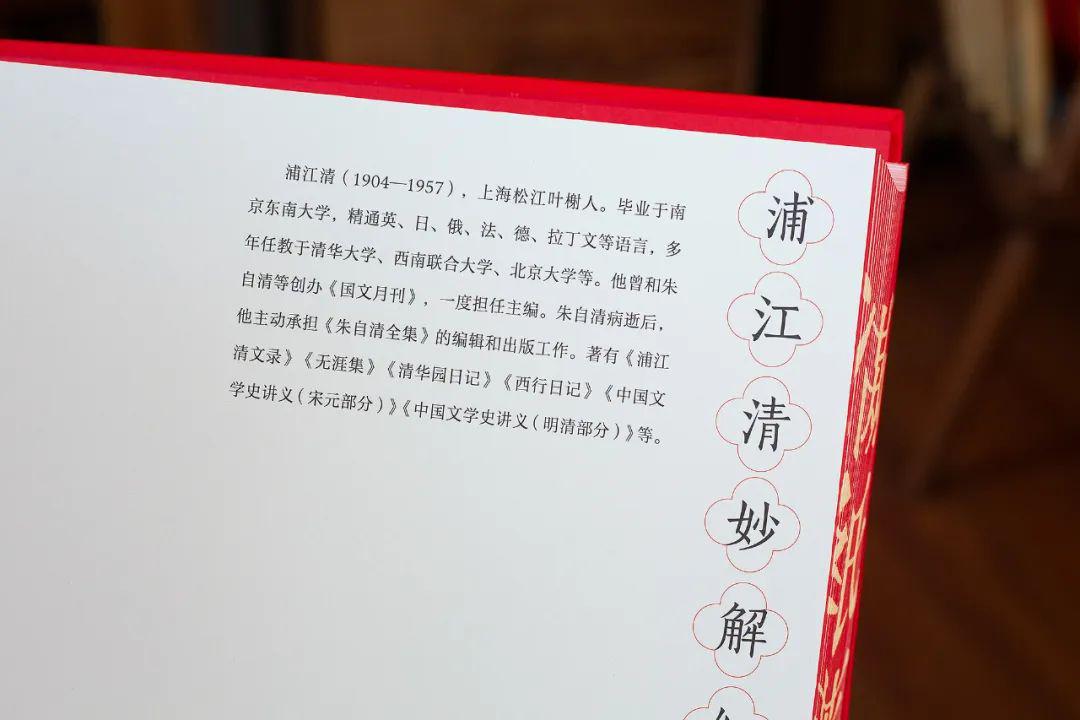 浦江清（1904—1957），上海松江叶榭人。毕业于南
京东南大学，精通英、日、俄、法、德、拉丁文等语言，多
年任教于清华大学、西南联合大学、北京大学等。他曾和朱
自清等创办《国文月刊》，一度担任主编。朱自清病逝后，
他主动承担《朱自清全集》的编辑和出版工作。著有《浦江
清文录》《无涯集》《清华园日记》《西行日记》《中国文
学史讲义（宋元部分）》《中国文学史讲义（明清部分）》等。
浦江清妙解